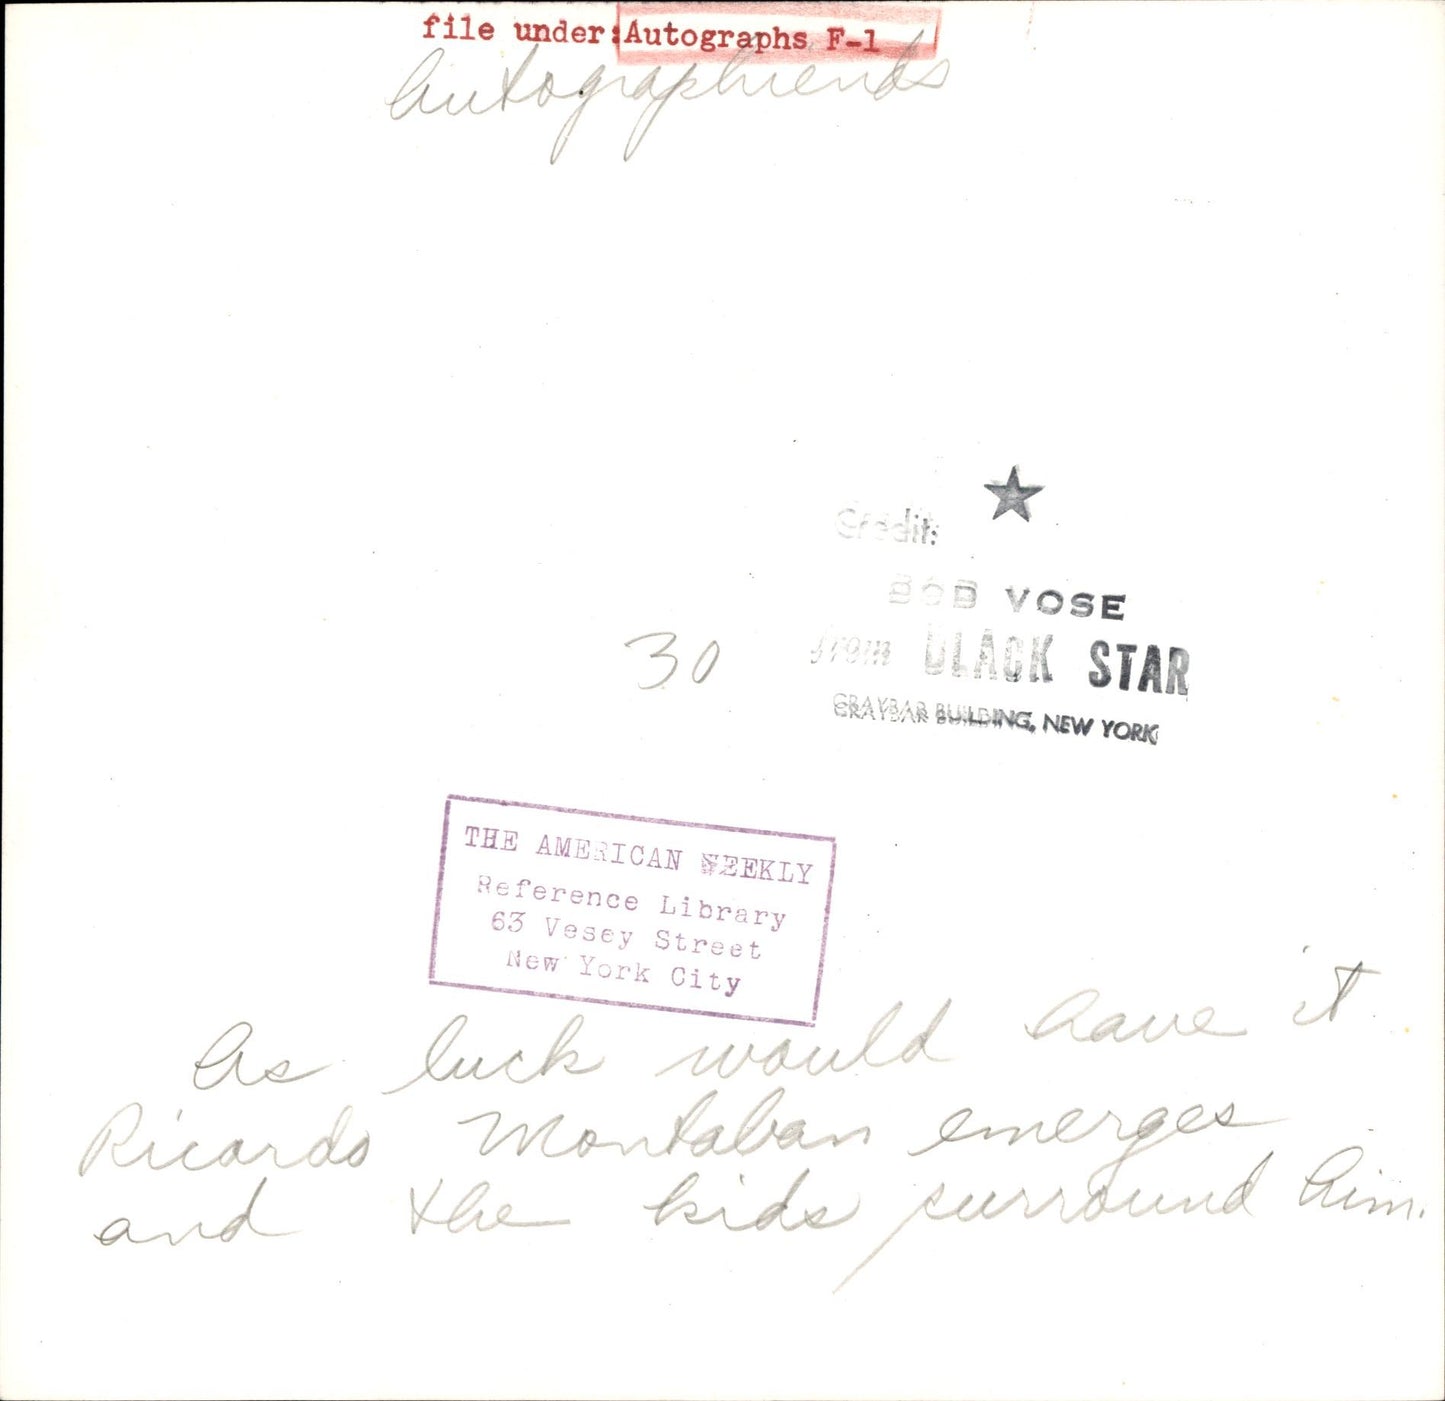 file under: Autographs F-1
Autographiends
Credit:
BOB VOSE
from BLACK STAR
GRAYBAR BUILDING, NEW YORK
30
THE AMERICAN WEEKLY
Reference Library
63 Vesey Street
New York City
As luck would have it
Ricardo Montaban emerges
and the kids surround him.